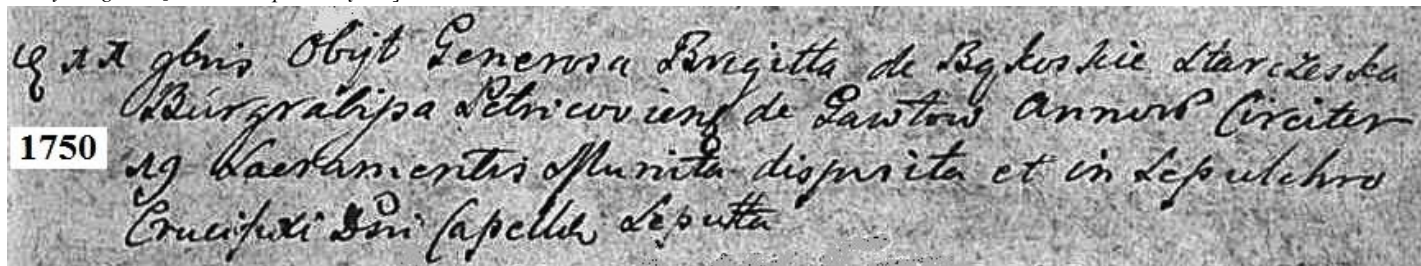 gbris Obijt Generosa Brigitta de Bąkoskie Starczeska
Burgrabijsa Petricoviens de Gawłow Annor Circiter
1750
19 Sacramentis Munita disposita et in Sepulchro
Crucifixi Dni Capellae Sepulta